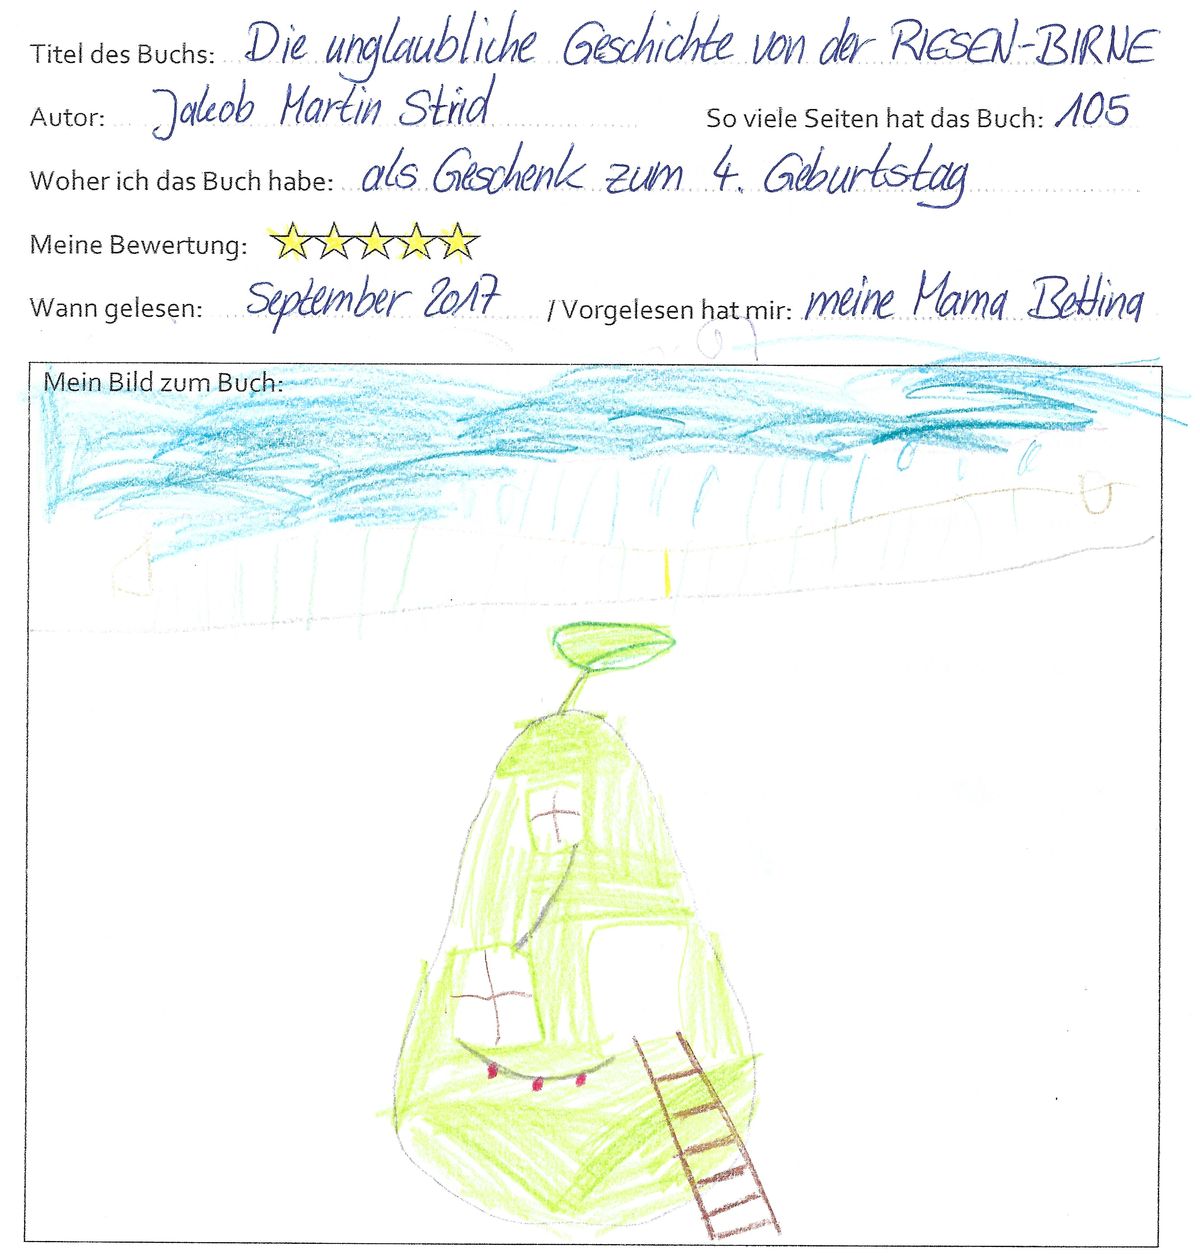 Titel des Buchs: Die unglaubliche Geschichte von der RIESEN-BIRNE
Autor: Jakob Martin Strid So viele Seiten hat das Buch: 105
Woher ich das Buch habe: als Geschenk zum 4. Geburtstag
Meine Bewertung:
Wann gelesen: September 2017 / Vorgelesen hat mir: meine Mama Bettina
Mein Bild zum Buch: